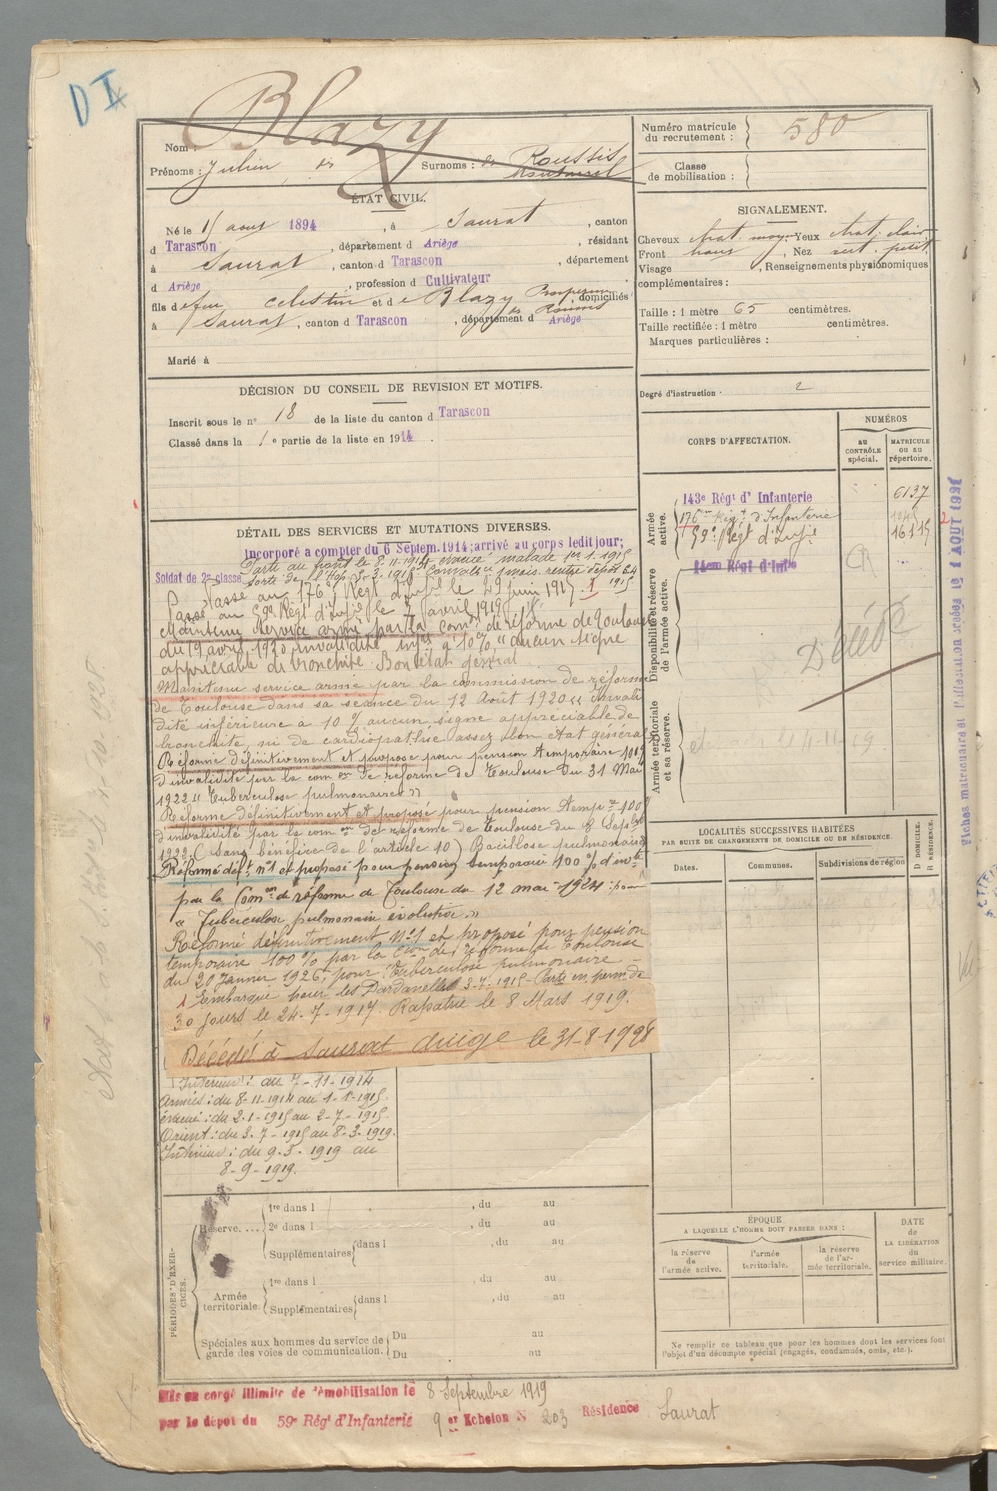 D I
Blazy
Nom
Prénoms : Julien
Surnoms : Roussis
Numéro matricule
du recrutement :
580
Classe
de mobilisation :
ÉTAT CIVIL.
Né le 15 aout 1894, à Saurat, canton
d Tarascon, département d Ariège, résidant
à Saurat, canton d Tarascon, département
d Ariège, profession d Cultivateur
fils de feu Celestin et de Blazy domiciliés
à Saurat, canton d Tarascon, département d Ariège
Marié à
SIGNALEMENT.
Cheveux chat. moyen Yeux chat. clair
Front Nez
Visage, Renseignements physionomiques
complémentaires :
Taille : 1 mètre 65 centimètres.
Taille rectifiée : 1 mètre centimètres.
Marques particulières :
Degré d'instruction : 2
DÉCISION DU CONSEIL DE REVISION ET MOTIFS.
Inscrit sous le n° 18 de la liste du canton d Tarascon
Classé dans la 1e partie de la liste en 1914.
CORPS D'AFFECTATION.
NUMÉROS
AU CONTRÔLE spécial.
MATRICULE OU AU répertoire.
Armée active.
143e Régt d'Infanterie 6137
176me Rég. d'Infanterie
59e Régt d'Infie
14eme Régt d'Infie
Disponibilité et réserve de l'armée active.
Décédé
Armée territoriale et sa réserve.
DÉTAIL DES SERVICES ET MUTATIONS DIVERSES.
Incorporé a compter du 6 Septem. 1914; arrivé au corps ledit jour;
Soldat de 2e classe
Parti au front le 8.11.1914 évacué malade 1er.1.1915
Passé au 176e Régt d'Infie le 29 juin 1915. 1
Passé au 59e Régt d'Infie le 7 avril 1919
Maintenu service armé par la Comon de réforme de Toulouse
du 19 avril 1920 invalidité infre à 10% "aucun signe
appréciable de bronchite. Bon état général
Maintenu service armé par la commission de réforme
de Toulouse dans sa séance du 12 Août 1920 « Invali
dité inférieure à 10% aucun signe appréciable de
bronchite, ni de cardiopathie assez bon état général
Réforme définitivement et proposé pour pension temporaire 100%
d'invalidité par la comon de réforme de Toulouse du 31 Mai
1922 « Tuberculose pulmonaire »
Réforme définitivement et proposé pour pension tempre 100%
d'invalidité par la comon de réforme de Toulouse du 8 Septbre
1922. (sans bénéfice de l'article 10) Bacillose pulmonaire
Réformé déft n°1 et proposé pour pension temporaire 100% d'invté
par la Comon de réforme de Toulouse du 12 mai 1924 : pour
« Tuberculose pulmonaire évolutive »
Réformé définitivement N°1 et proposé pour pension
temporaire 100% par la Cion de réforme de Toulouse
du 20 Janvier 1926, pour Tuberculose pulmonaire –
1 Embarqué pour les Dardanelles 3-7-1915 – Parti en perm de
30 jours le 24-7-1917. Rapatrié le 8 Mars 1919.
Décédé à Saurat Ariège le 31-8-1928
Intérieur : au 7-11-1914
Armées : du 8-11-1914 au 1-1-1915
évacué : du 2-1-1915 au 2-7-1915
Orient : du 3-7-1915 au 8-3-1919.
Intérieur : du 9-3-1919 au
8-9-1919.
LOCALITÉS SUCCESSIVES HABITÉES
PAR SUITE DE CHANGEMENTS DE DOMICILE OU DE RÉSIDENCE.
Dates.
Communes.
Subdivisions de région
D DOMICILE.
R RÉSIDENCE.
PÉRIODES D'EXERCICES.
Réserve....
1re dans l, du au
2e dans l, du au
Supplémentaires dans l, du au
Armée territoriale.
1re dans l, du au
Supplémentaires dans l, du au
Spéciales aux hommes du service de
garde des voies de communication.
Du au
Du au
ÉPOQUE
A LAQUELLE L'HOMME DOIT PASSER DANS :
la réserve de l'armée active.
l'armée territoriale.
la réserve de l'armée territoriale.
DATE
de
LA LIBÉRATION
du
service militaire.
Ne remplir ce tableau que pour les hommes dont les services font
l'objet d'un décompte spécial (engagés, condamnés, omis, etc.).
Mis en congé illimité de démobilisation le 8 Septembre 1919
par le dépot du 59e Régt d'Infanterie 9 er Echelon N° 203 Résidence Saurat